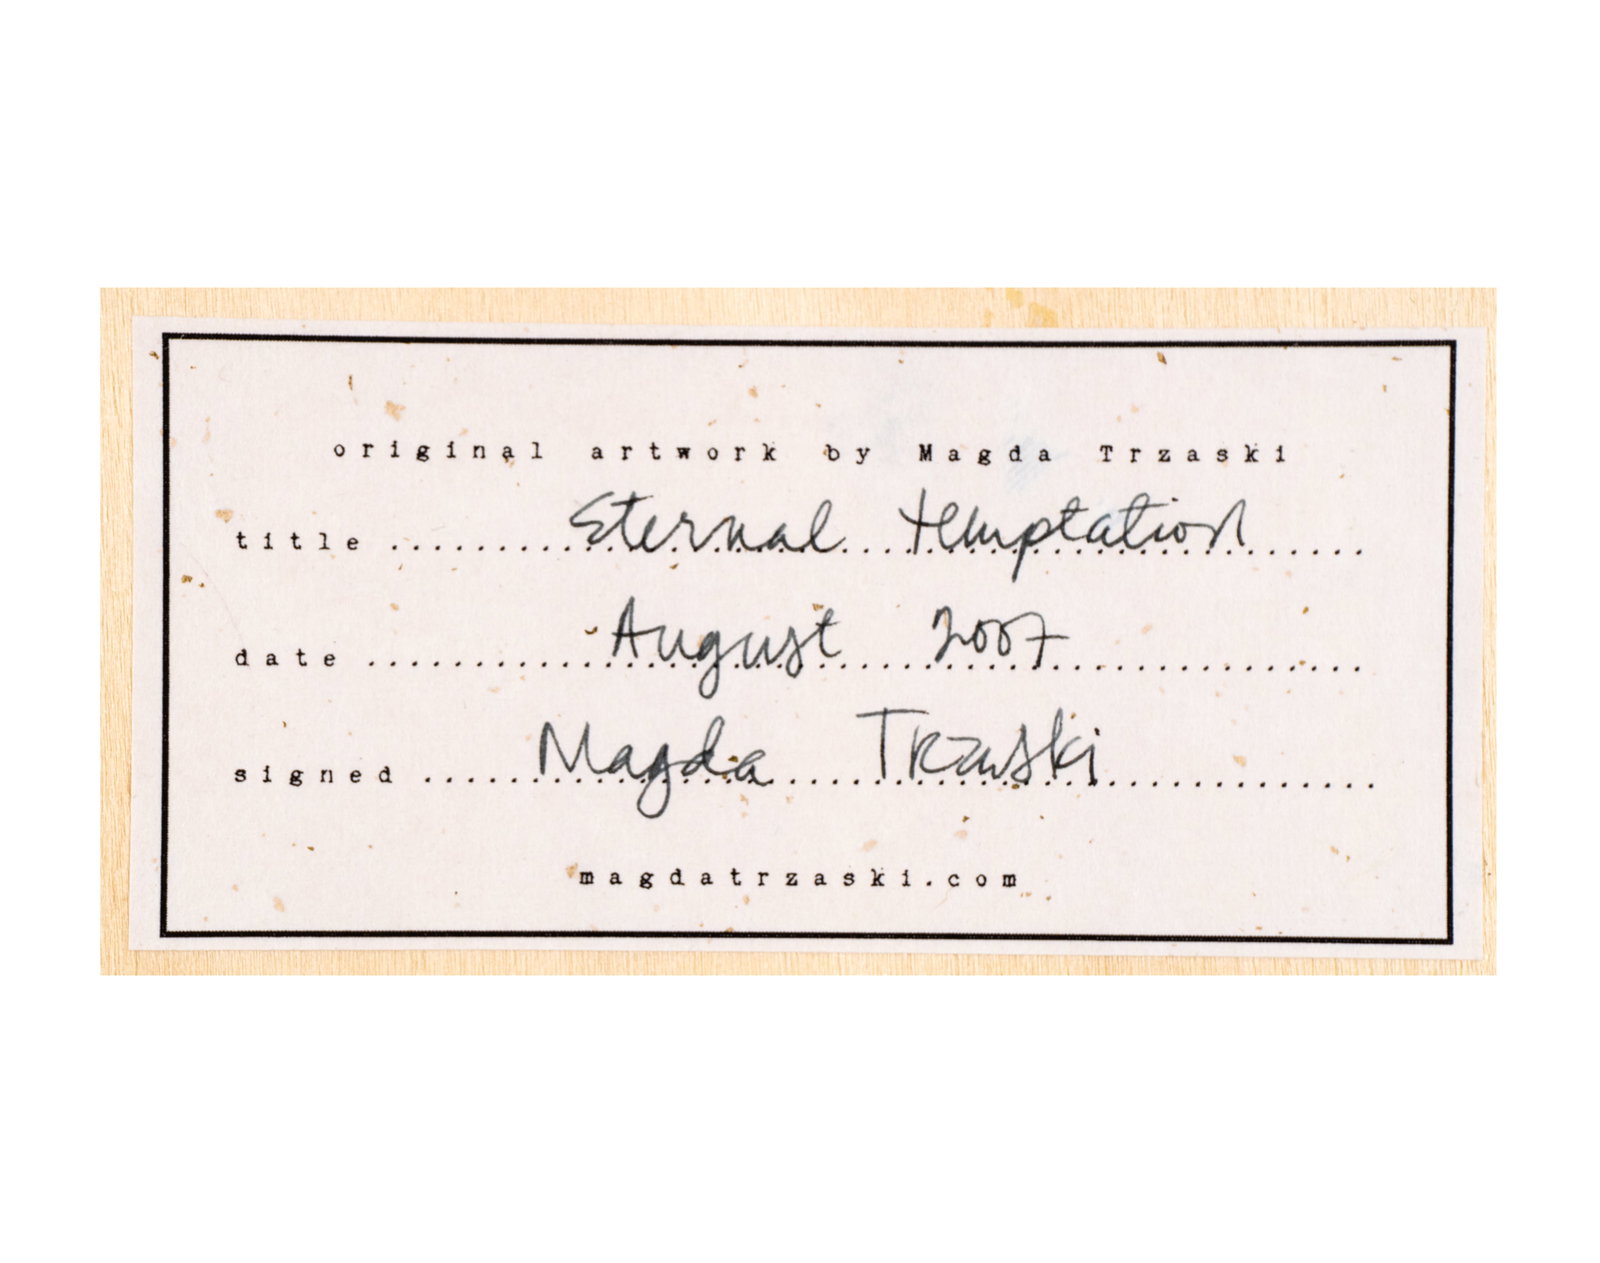 original artwork by Magda Trzaski
title .......... Eternal temptation ......
date .......... August 2007 ..........
signed ..... Magda Trzaski ..........
magdatrzaski.com